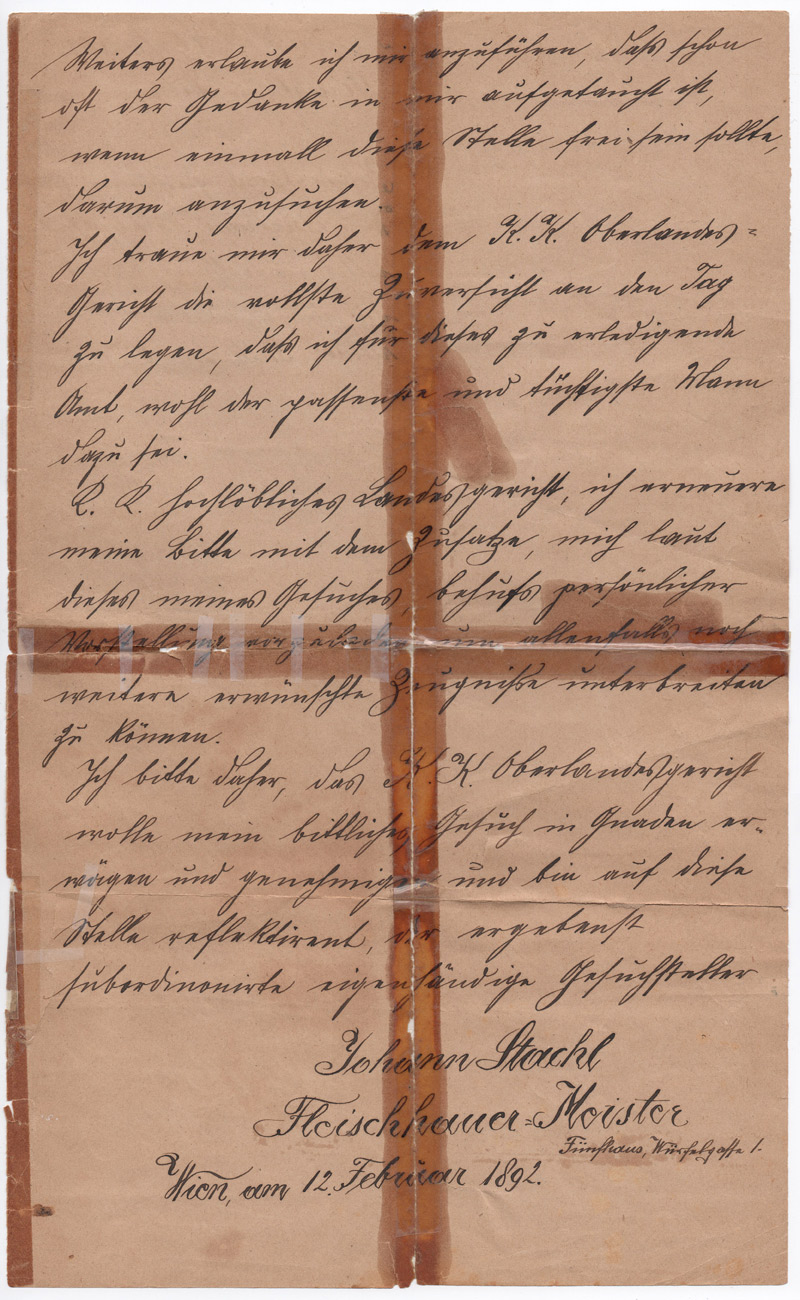 Weiters erlaube ich mir anzuführen, daß schon
oft der Gedanke in mir aufgetaucht ist,
wenn einmall diese Stelle frei sein sollte,
darum anzusuchen.
Ich traue mir daher dem K. K. Oberlandes=
Gericht die vollste Zuversicht an den Tag
zu legen, daß ich für dieses zu erledigende
Amt, wohl der passenste und tüchtigste Mann
dazu sei.
K. K. hochlöbliches Landesgericht, ich erneuere
meine Bitte mit dem Zusatze, mich laut
dieses meines Gesuches, behufs persönlicher
Vorstellung vorzuladen um allenfalls noch
weitere erwünschte Zeugniße unterbreiten
zu können.
Ich bitte daher, das K. K. Oberlandesgericht
wolle mein bittliches Gesuch in Gnaden er=
wägen und genehmigen und bin auf diese
Stelle reflektirent, der ergebenst
subordinonirte eigenhändige Gesuchsteller
Johann Stachl
Fleischhauer=Meister
Fünfhaus, Würfelgasse 1.
Wien, am 12. Februar 1892.